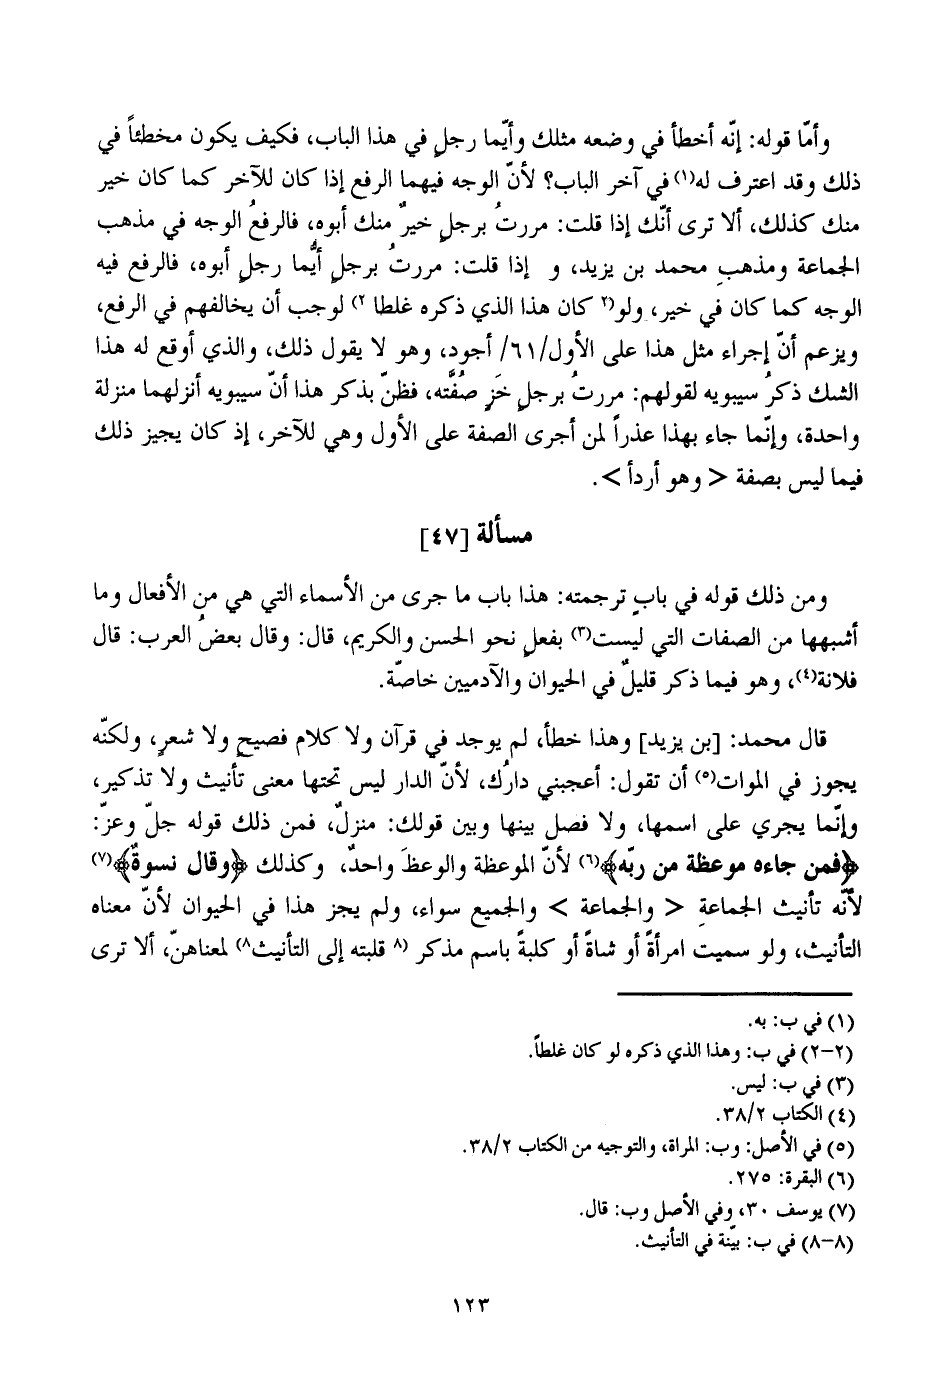 وأمّا قوله: إنّه أخطأ في وضعه مثلك وأيّما رجلٍ في هذا الباب، فكيف يكون مخطئاً في
ذلك وقد اعترف له(١) في آخر الباب؟ لأنّ الوجه فيهما الرفع إذا كان للآخر كما كان خير
منك كذلك، ألا ترى أنّك إذا قلت: مررتُ برجلٍ خيرٌ منك أبوه، فالرفعُ الوجه في مذهب
الجماعة ومذهبِ محمد بن يزيد، و إذا قلت: مررتُ برجلٍ أيُّما رجلٍ أبوه، فالرفع فيه
الوجه كما كان في خير، ولو(٢ كان هذا الذي ذكره غلطا ٢) لوجب أن يخالفهم في الرفع،
ويزعم أنّ إجراء مثل هذا على الأول/٦١/ أجود، وهو لا يقول ذلك، والذي أوقع له هذا
الشك ذكرُ سيبويه لقولهم: مررتُ برجلٍ خَزٍ صُفَّته، فظنّ بذكر هذا أنّ سيبويه أنزلهما منزلة
واحدة، وإنّما جاء بهذا عذراً لمن أجرى الصفة على الأول وهي للآخر، إذ كان يجيز ذلك
فيما ليس بصفة < وهو أردأ >.
مسألة [٤٧]
ومن ذلك قوله في بابٍ ترجمته: هذا باب ما جرى من الأسماء التي هي من الأفعال وما
أشبهها من الصفات التي ليست(٣) بفعلٍ نحو الحسن والكريم، قال: وقال بعضُ العرب: قال
فلانة(٤)، وهو فيما ذكر قليلٌ في الحيوان والآدميين خاصّة.
قال محمد: [بن يزيد] وهذا خطأ، لم يوجد في قرآن ولا كلام فصيحٍ ولا شعرٍ، ولكنّه
يجوز في الموات(٥) أن تقول: أعجبني دارُك، لأنّ الدار ليس تحتها معنى تأنيث ولا تذكير،
وإنّما يجري على اسمها، ولا فصل بينها وبين قولك: منزلٌ، فمن ذلك قوله جلّ وعزّ:
﴿فمن جاءه موعظة من ربّه﴾(٦) لأنّ الموعظة والوعظَ واحدٌ، وكذلك ﴿وقال نسوةٌ﴾(٧)
لأنّه تأنيث الجماعةِ < والجماعة > والجميع سواء، ولم يجز هذا في الحيوان لأنّ معناه
التأنيث، ولو سميت امرأةً أو شاةً أو كلبةً باسم مذكر (٨ قلبته إلى التأنيث٨) لمعناهنّ، ألا ترى
(١) في ب: به.
(٢-٢) في ب: وهذا الذي ذكره لو كان غلطاً.
(٣) في ب: ليس.
(٤) الكتاب ٣٨/٢.
(٥) في الأصل: وب: المراة، والتوجيه من الكتاب ٣٨/٢.
(٦) البقرة: ٢٧٥.
(٧) يوسف ٣٠، وفي الأصل وب: قال.
(٨-٨) في ب: بيّنة في التأنيث.
١٢٣